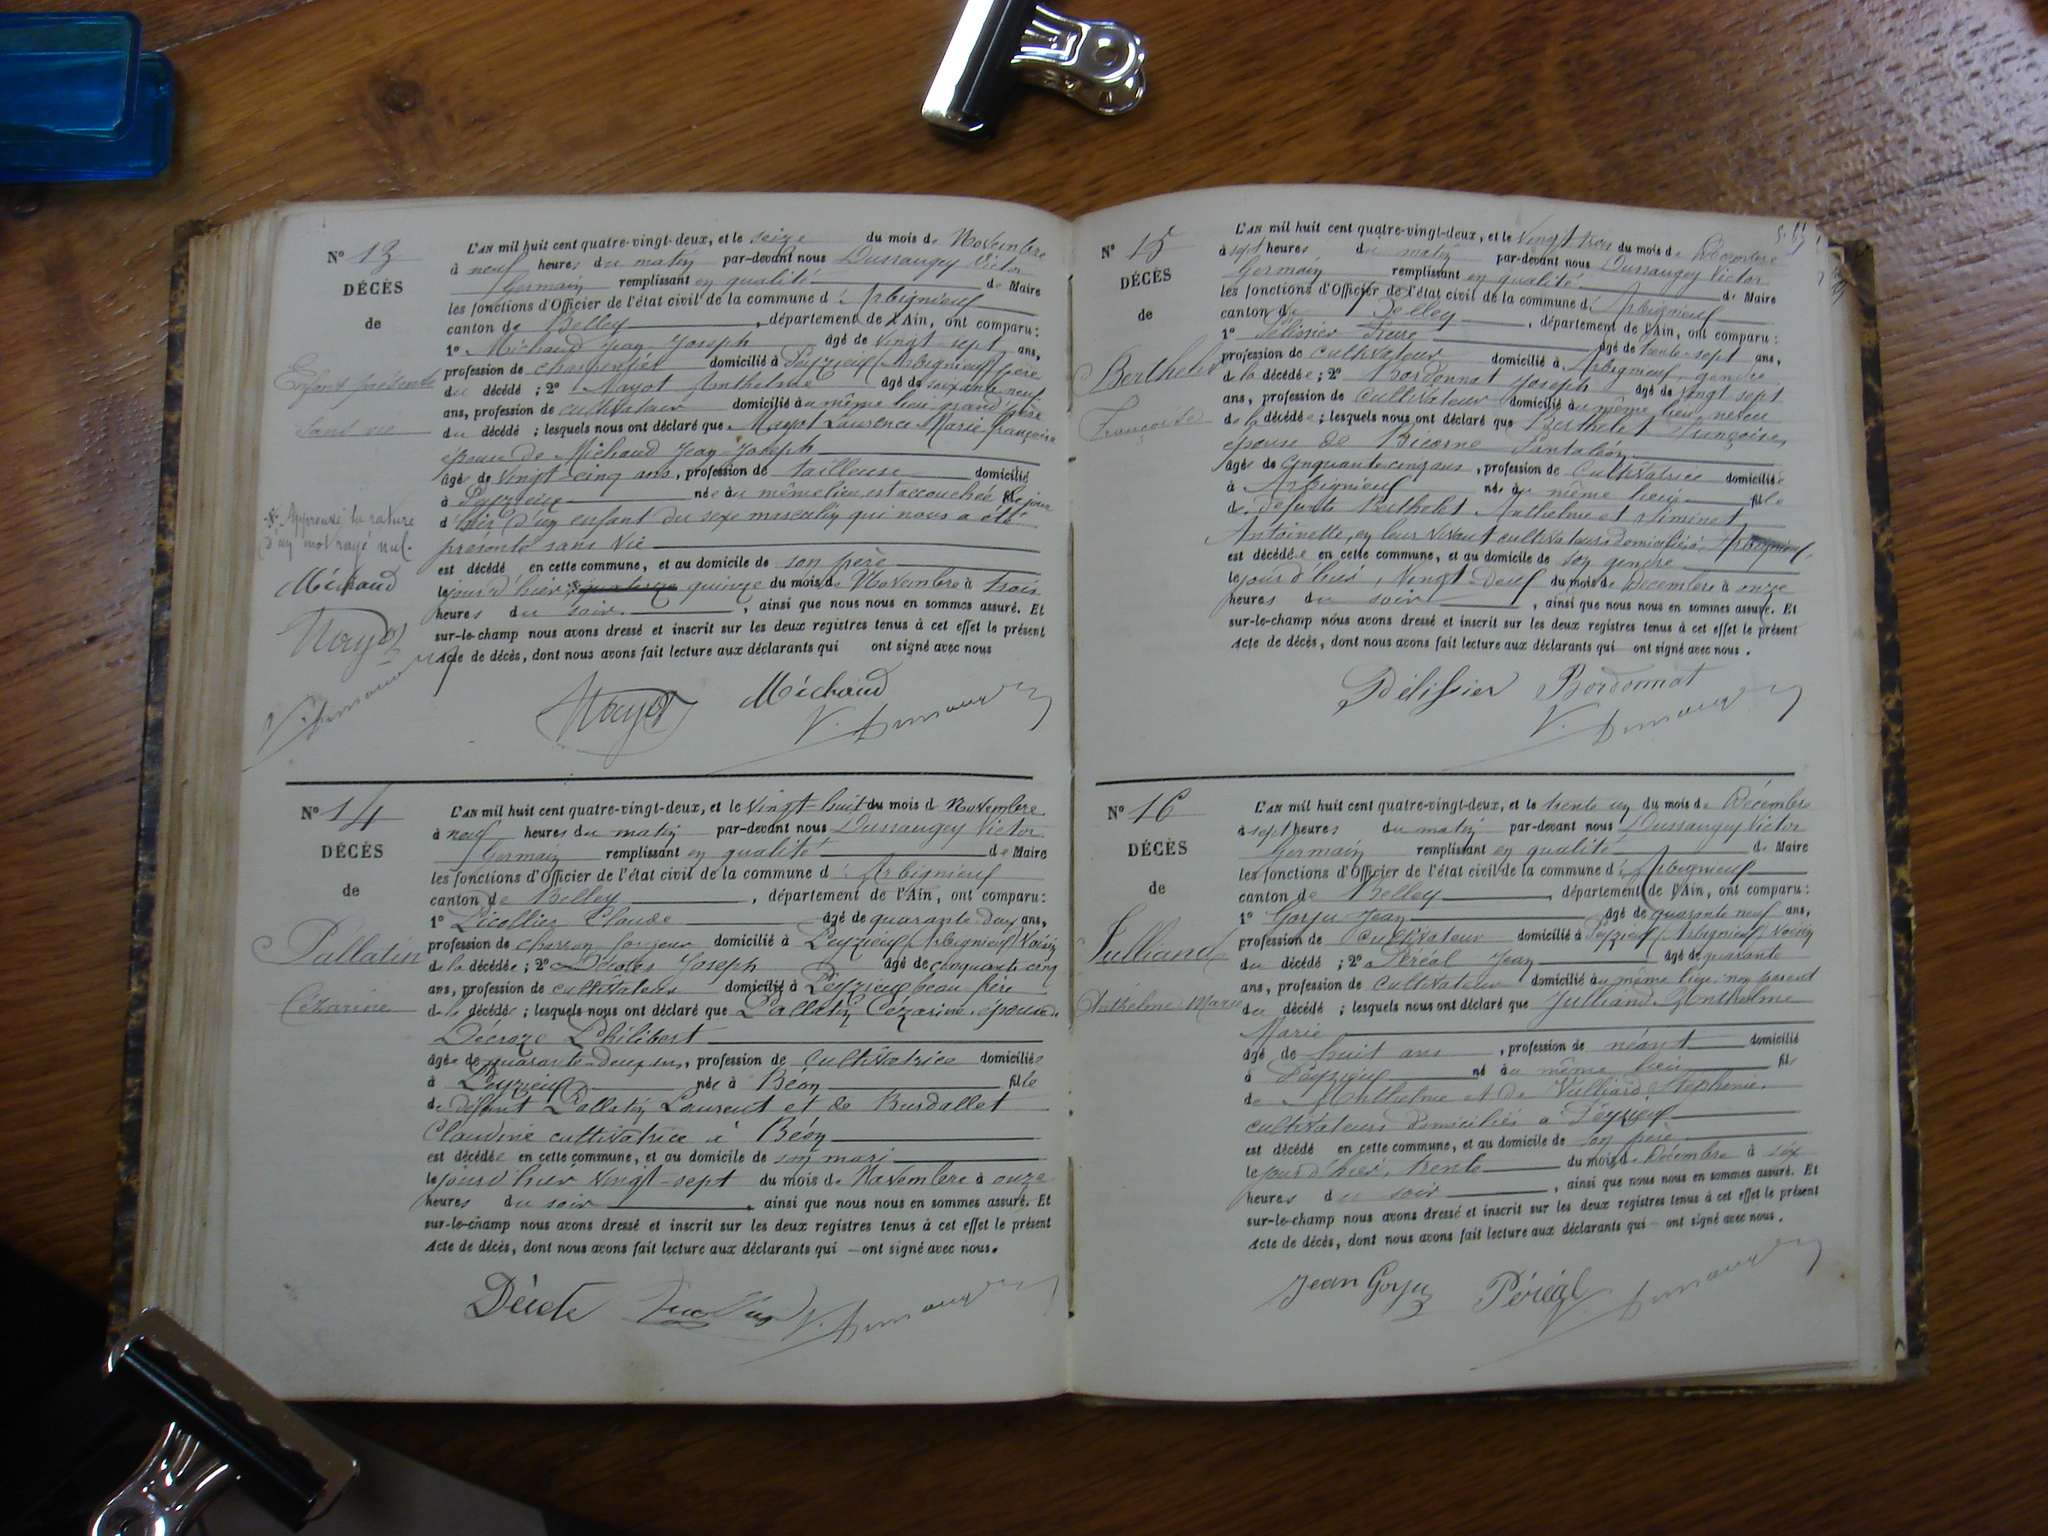 N° 13
DÉCÈS
de
Enfant présenté
sans vie
Approuvé la rature
d'un mot rayé nul.
Michaud
Mayot
L'AN mil huit cent quatre-vingt-deux, et le seize du mois de Novembre
à neuf heures du matin par-devant nous Dussaugey Victor
Germain remplissant en qualité de Maire
les fonctions d'Officier de l'état civil de la commune d'Arbignieu
canton de Belley, département de l'Ain, ont comparu:
1° Michaud Jean Joseph âgé de vingt-sept ans,
profession de charpentier domicilié à Peyzieu (Arbignieu) père
du décédé; 2° Mayot Anthelme âgé de soixante neuf
ans, profession de cultivateur domicilié au même lieu grand'père
du décédé; lesquels nous ont déclaré que Mayot Laurence Marie françoise
épouse de Michaud Jean Joseph
âgée de vingt-cinq ans, profession de tailleuse domicilié
à Peyzieu née au même lieu, est accouchée le jour
d'hier d'un enfant du sexe masculin qui nous a été
présenté sans vie
est décédé en cette commune, et au domicile de son père
le jour d'hier quatorze quinze du mois de Novembre à trois
heures du soir, ainsi que nous nous en sommes assuré. Et
sur-le-champ nous avons dressé et inscrit sur les deux registres tenus à cet effet le présent
Acte de décès, dont nous avons fait lecture aux déclarants qui ont signé avec nous
Mayot Michaud
N° 14
DÉCÈS
de
Pallatin
Cézarine
L'AN mil huit cent quatre-vingt-deux, et le vingt huit du mois de Novembre
à neuf heures du matin par-devant nous Dussaugey Victor
Germain remplissant en qualité de Maire
les fonctions d'Officier de l'état civil de la commune d'Arbignieu
canton de Belley, département de l'Ain, ont comparu:
1° Claude âgé de quarante deux ans,
profession de charron forgeur domicilié à Peyzieu (Arbignieu) Voisin
de la décédée; 2° Joseph âgé de cinquante cinq
ans, profession de cultivateur domicilié à Peyzieu beau frère
de la décédée; lesquels nous ont déclaré que Pallatin Cézarine, épouse de
Décroze Philibert
âgée de quarante-deux ans, profession de cultivatrice domiciliée
à Peyzieu née à Béon fille
de défunt Pallatin Laurent et de Burdallet
Claudine cultivatrice à Béon
est décédée en cette commune, et au domicile de son mari
le jour d'hier vingt-sept du mois de Novembre à onze
heures du soir, ainsi que nous nous en sommes assuré. Et
sur-le-champ nous avons dressé et inscrit sur les deux registres tenus à cet effet le présent
Acte de décès, dont nous avons fait lecture aux déclarants qui ont signé avec nous.
N° 15
DÉCÈS
de
Berthelet
Françoise
L'AN mil huit cent quatre-vingt-deux, et le vingt-trois du mois de Décembre
à sept heures du matin par-devant nous Dussaugey Victor
Germain remplissant en qualité de Maire
les fonctions d'Officier de l'état civil de la commune d'Arbignieu
canton de Belley, département de l'Ain, ont comparu:
1° Pélissier Pierre âgé de trente-sept ans,
profession de cultivateur domicilié à Arbignieu, gendre
de la décédée; 2° Bordonnat Joseph âgé de vingt sept
ans, profession de cultivateur domicilié au même lieu neveu
de la décédée; lesquels nous ont déclaré que Berthelet Françoise,
épouse de Bicorne Pantaléon
âgée de cinquante cinq ans, profession de cultivatrice domiciliée
à Arbignieu née au même lieu fille
de défunts Berthelet Anthelme et Siminet
Antoinette, en leur vivant cultivateurs domiciliés à Arbignieu,
est décédée en cette commune, et au domicile de son gendre
le jour d'hier, vingt-deux du mois de Décembre à onze
heures du soir, ainsi que nous nous en sommes assuré. Et
sur-le-champ nous avons dressé et inscrit sur les deux registres tenus à cet effet le présent
Acte de décès, dont nous avons fait lecture aux déclarants qui ont signé avec nous.
Pélissier Bordonnat
N° 16
DÉCÈS
de
Julliand
Anthelme Marie
L'AN mil huit cent quatre-vingt-deux, et le trente un du mois de Décembre
à sept heures du matin par-devant nous Dussaugey Victor
Germain remplissant en qualité de Maire
les fonctions d'Officier de l'état civil de la commune d'Arbignieu
canton de Belley, département de l'Ain, ont comparu:
1° Gorju Jean âgé de quarante neuf ans,
profession de cultivateur domicilié à Peyzieu (Arbignieu) Voisin
du décédé; 2° Péréal Jean âgé de quarante
ans, profession de cultivateur domicilié au même lieu non parent
du décédé; lesquels nous ont déclaré que Julliand Anthelme
Marie
âgé de huit ans, profession de néant domicilié
à Peyzieu né au même lieu fils
de Anthelme et de Vulliard Stéphanie,
cultivateurs domiciliés à Peyzieu
est décédé en cette commune, et au domicile de son père
le jour d'hier, trente du mois de Décembre à six
heures du soir, ainsi que nous nous en sommes assuré. Et
sur-le-champ nous avons dressé et inscrit sur les deux registres tenus à cet effet le présent
Acte de décès, dont nous avons fait lecture aux déclarants qui ont signé avec nous.
Jean Gorju Péréal